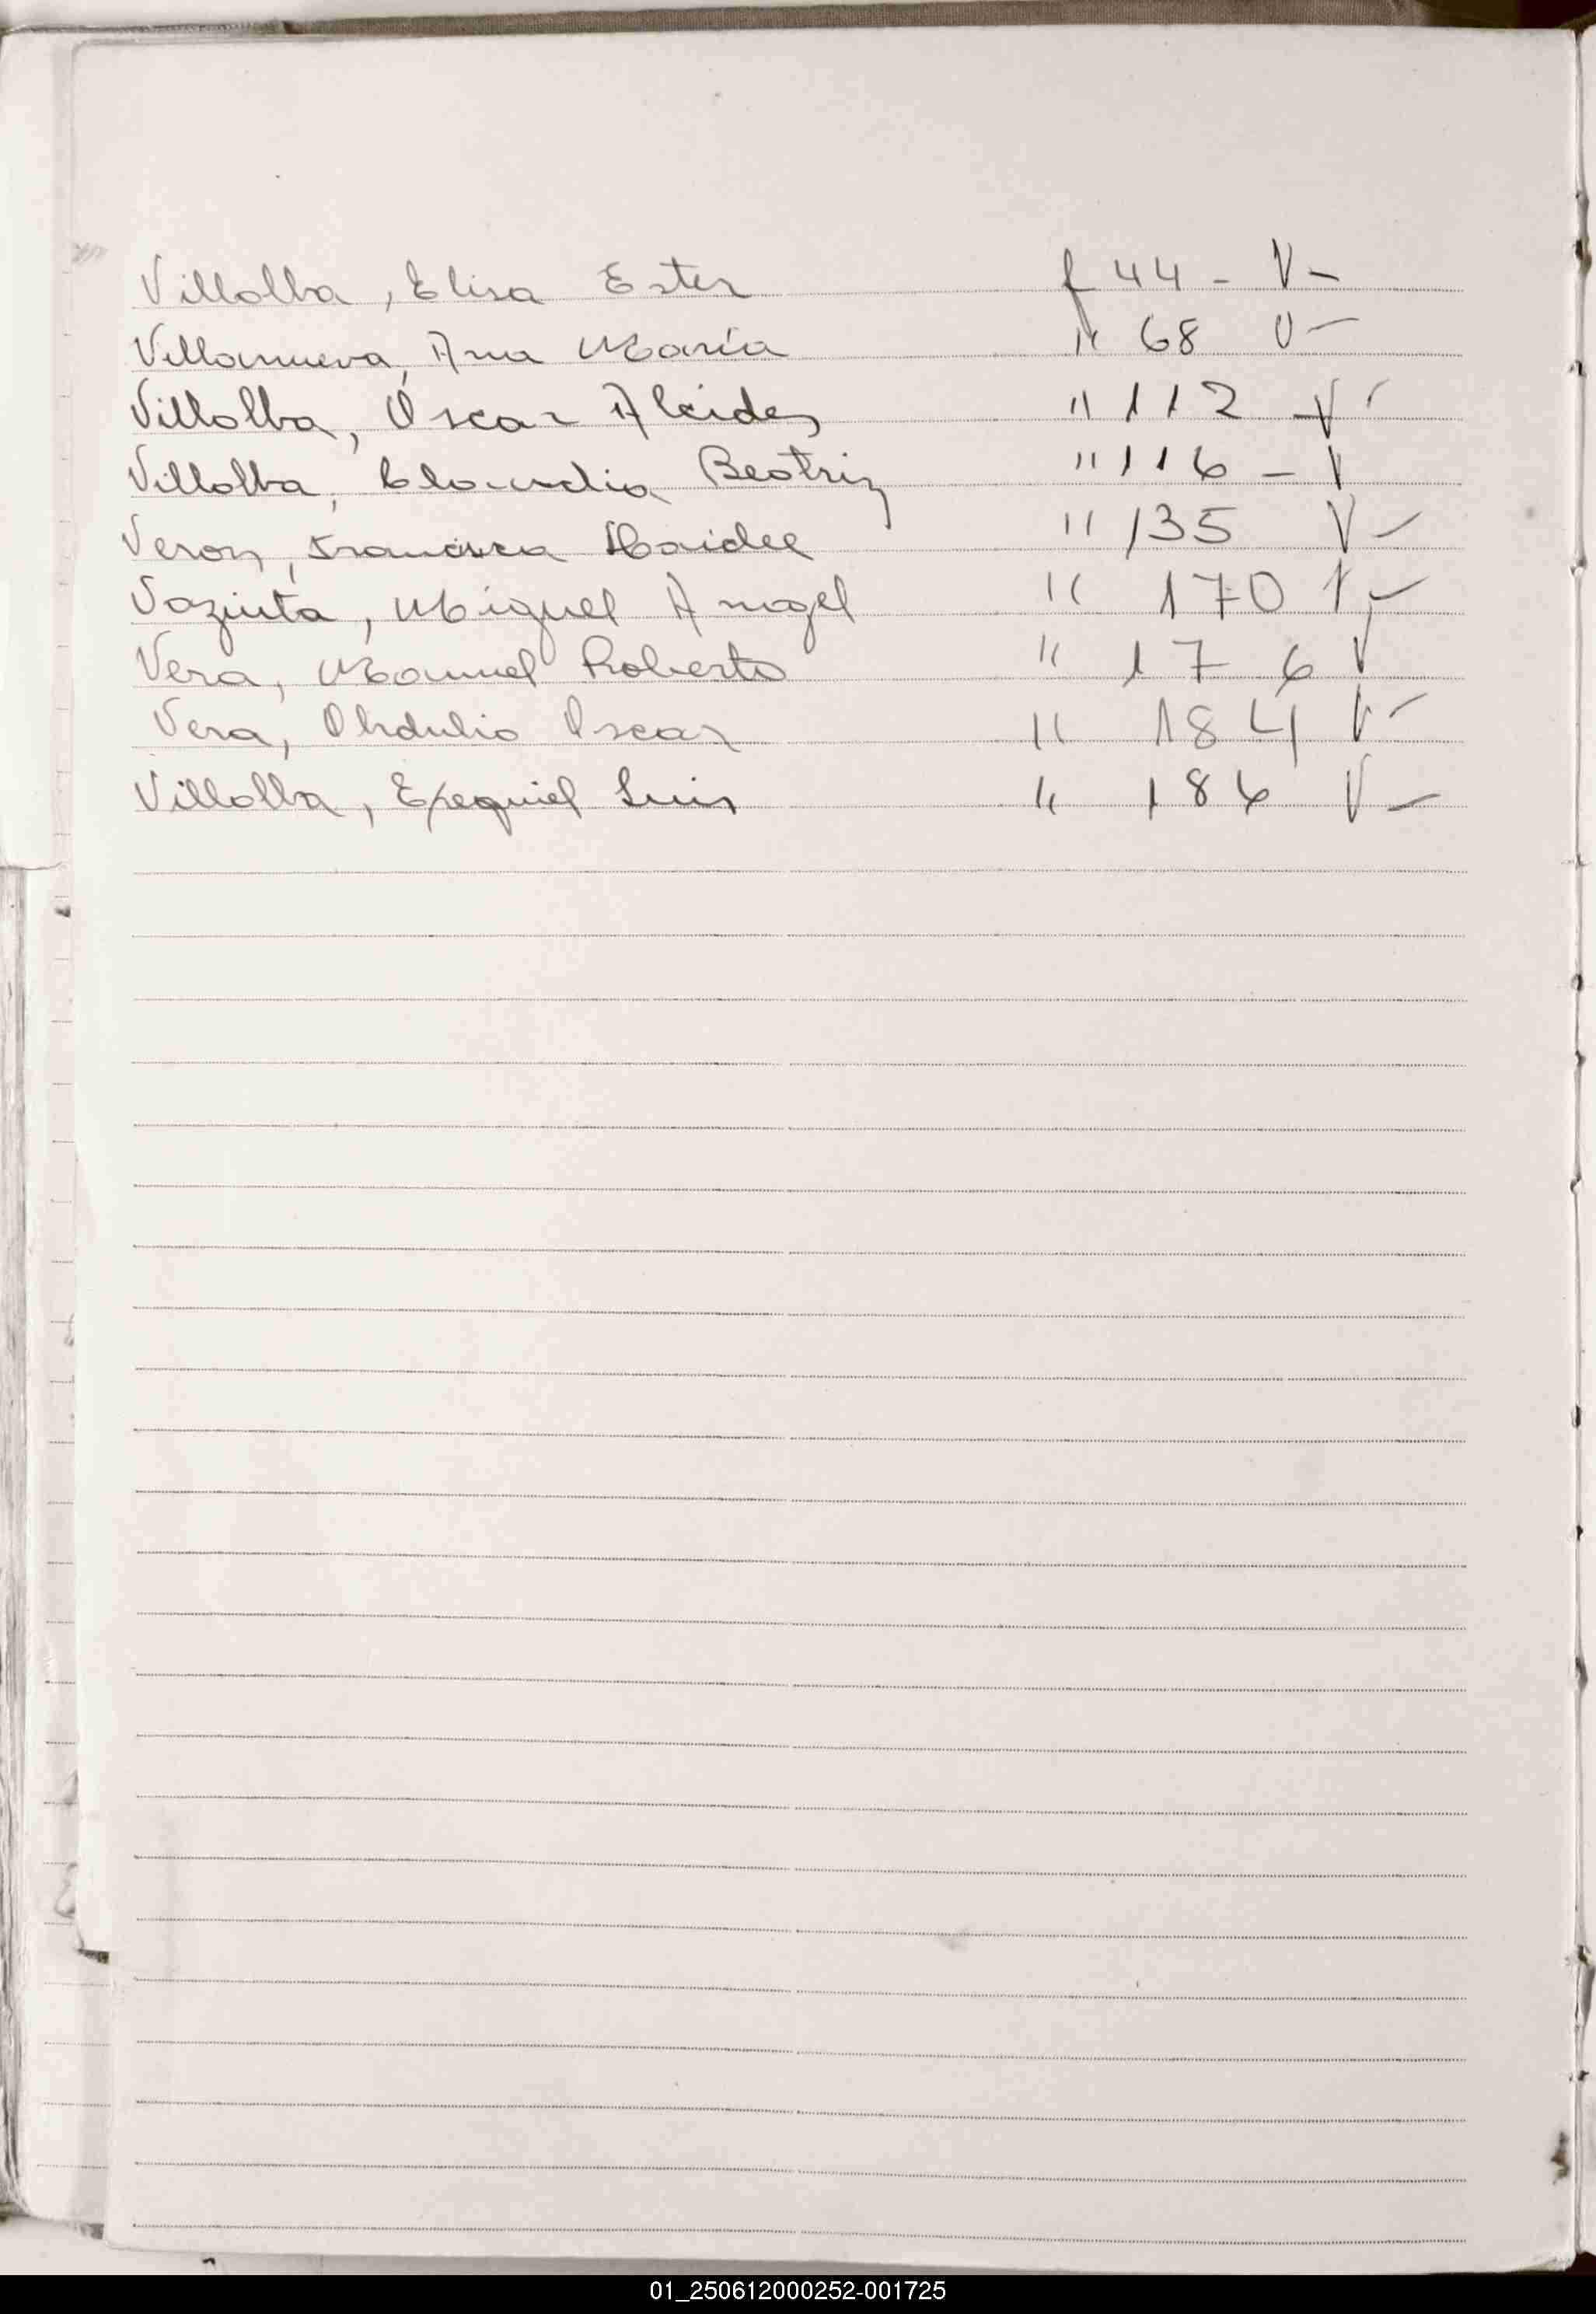 Villalba, Elisa Ester f 44 - V-
Villanueva, Ana María " 68 V-
Villalba, Oscar Alcides " 112 - V -
Villalba, Claudia Beatriz " 116 - V
Veron, Francisca Haidee " 135 V -
Vazurta, Miguel Angel " 170 V -
Vera, Manuel Roberto " 176 V
Vera, Obdulio Oscar " 184 V -
Villalba, Exequiel Luis " 186 V -
01_250612000252-001725